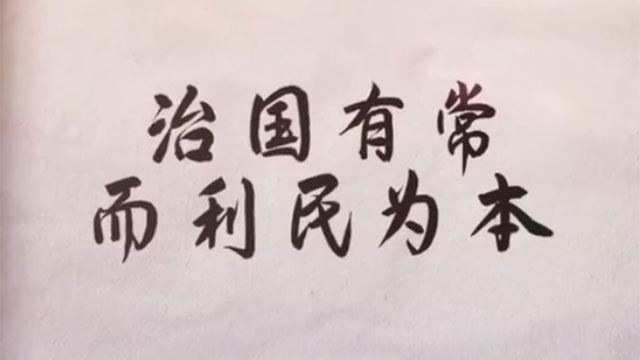 治国有常
而利民为本